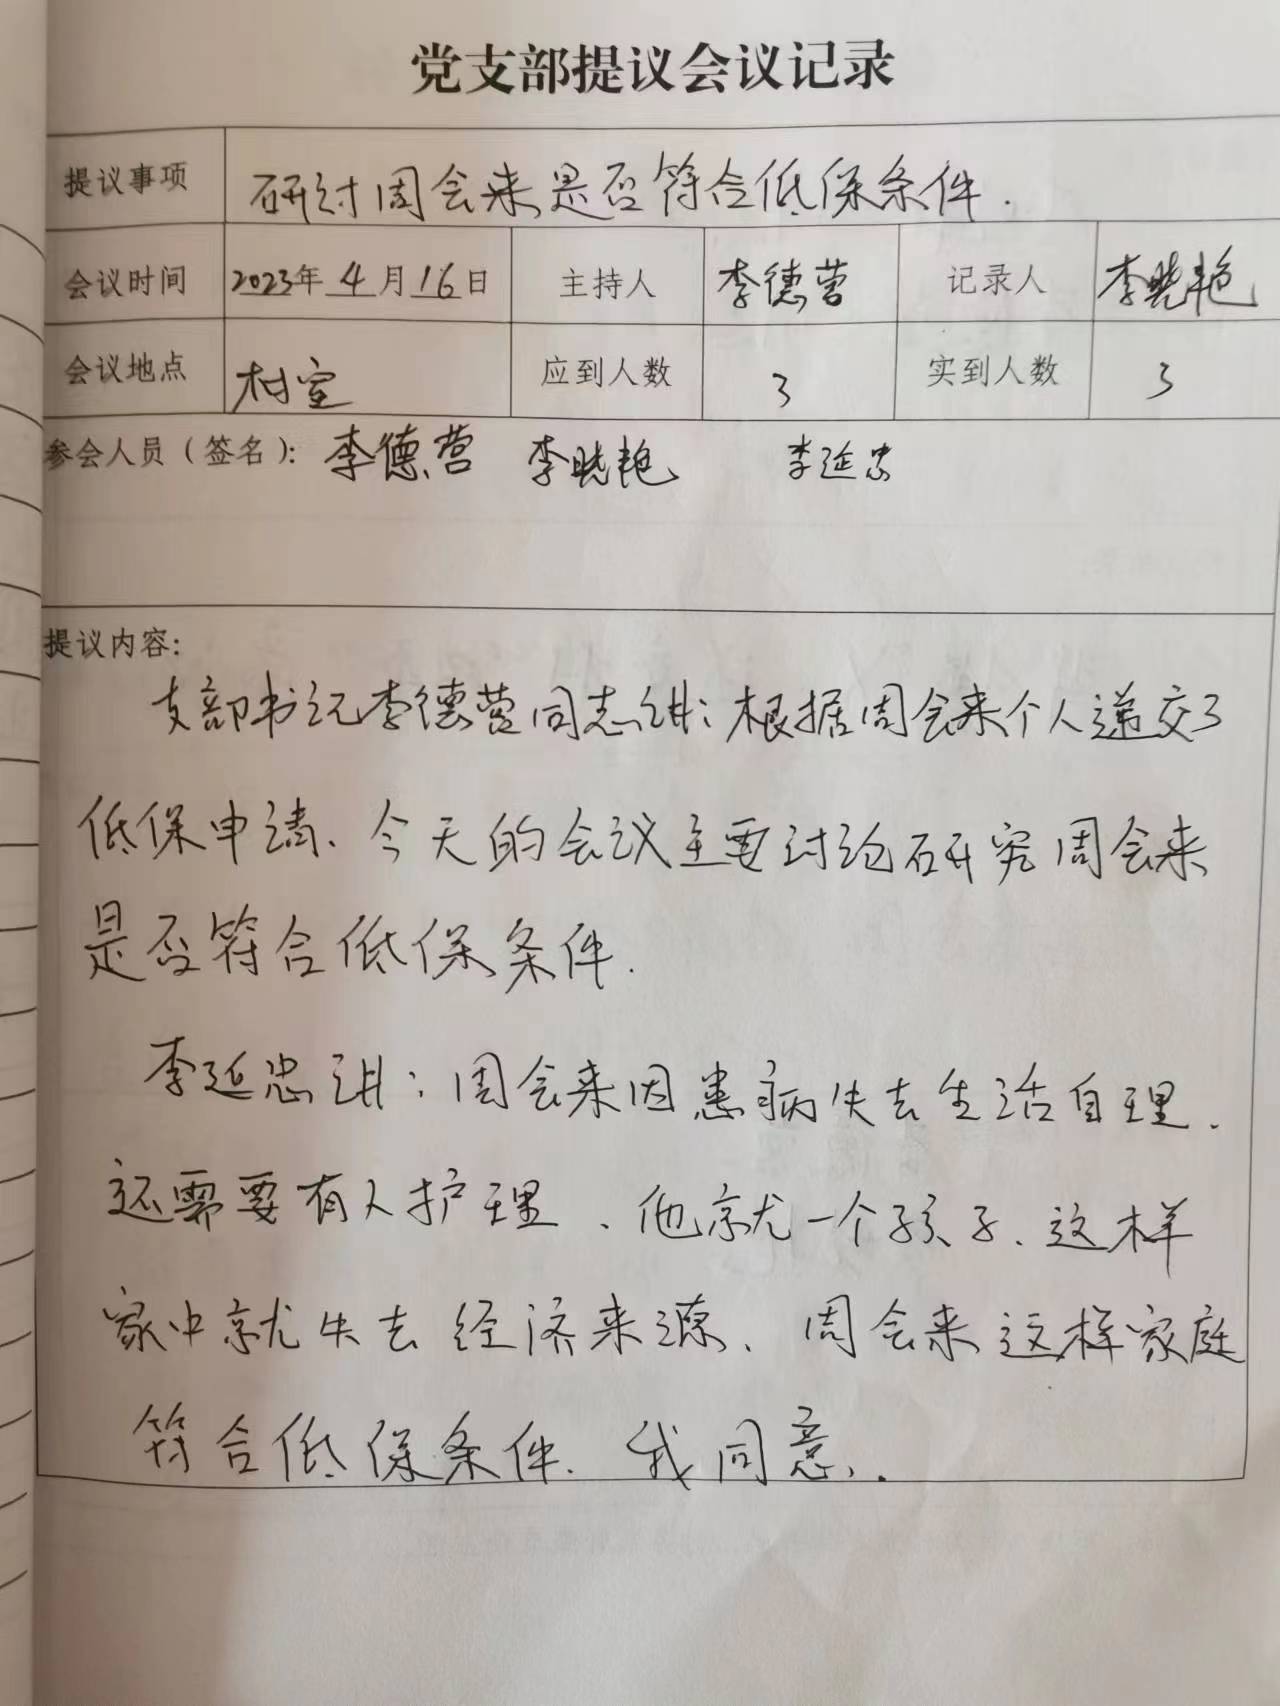 党支部提议会议记录
提议事项 研讨周会来是否符合低保条件.
会议时间 2023年4月16日 主持人 李德营 记录人 李晓艳
会议地点 村室 应到人数 3 实到人数 3
参会人员（签名）： 李德营 李晓艳 李延忠
提议内容：
支部书记李德营同志讲：根据周会来个人递交了
低保申请、今天的会议主要讨论研究周会来
是否符合低保条件.
李延忠讲：周会来因患病失去生活自理、
还需要有人护理、他就一个孩子、这样
家中就失去经济来源、周会来这样家庭
符合低保条件. 我同意.